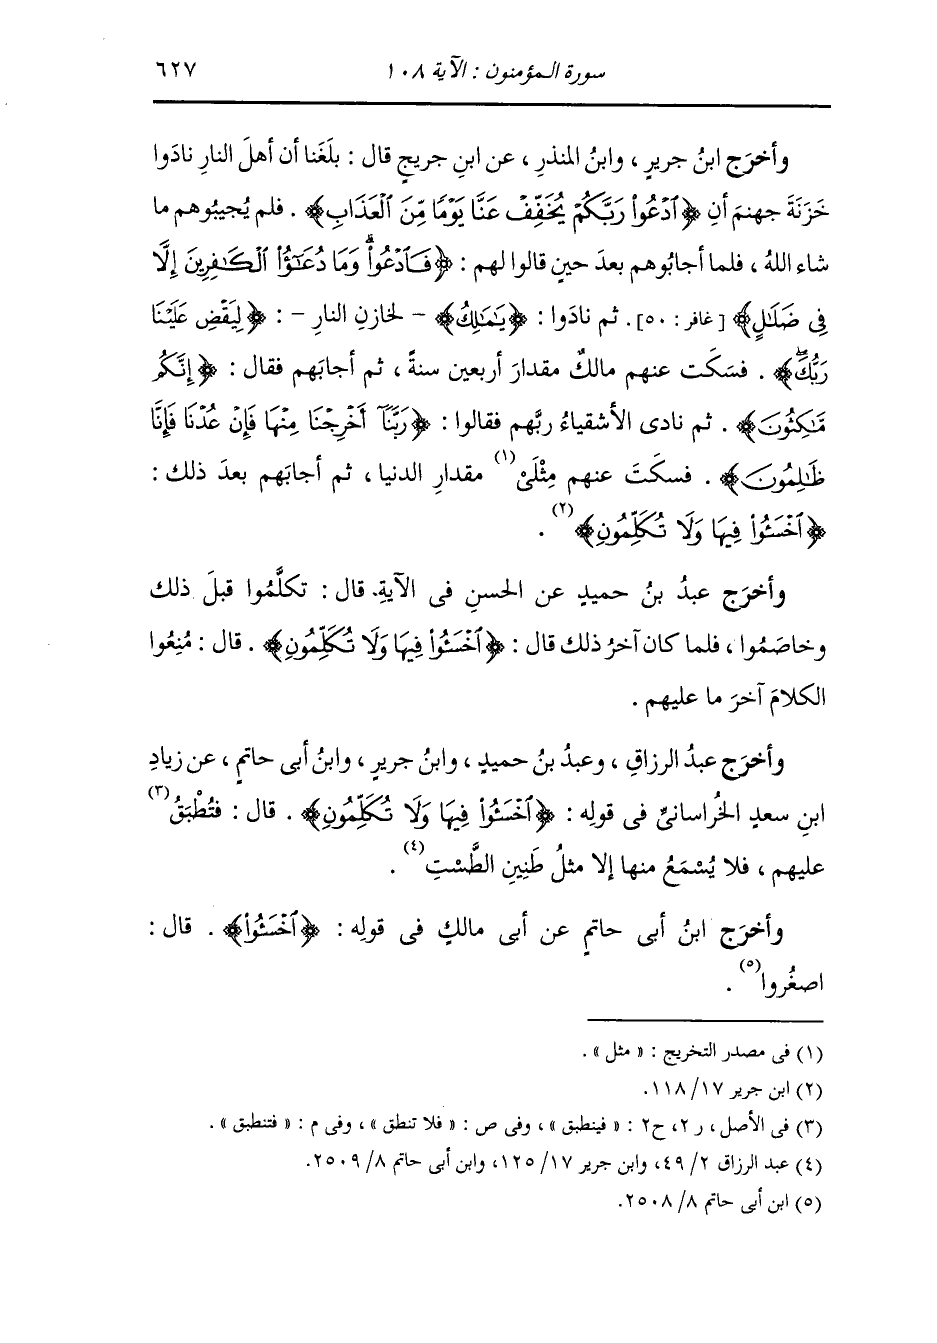 سورة المؤمنون : الآية ١٠٨ ٦٢٧
وأخرَج ابنُ جريرٍ ، وابنُ المنذرِ ، عن ابنِ جريجٍ قال : بلَغَنا أن أهلَ النارِ نادَوا
خَزَنَةَ جهنمَ أنِ ﴿ٱدْعُوا۟ رَبَّكُمْ يُخَفِّفْ عَنَّا يَوْمًا مِّنَ ٱلْعَذَابِ﴾ . فلم يُجيبُوهم ما
شاء اللهُ ، فلما أجابُوهم بعدَ حينٍ قالوا لهم : ﴿فَٱدْعُوا۟ۗ وَمَا دُعَٰٓؤُا۟ ٱلْكَٰفِرِينَ إِلَّا
فِى ضَلَٰلٍ﴾ [غافر : ٥٠] . ثم نادَوا : ﴿يَٰمَٰلِكُ﴾ - لخازنِ النارِ - : ﴿لِيَقْضِ عَلَيْنَا
رَبُّكَۖ﴾ . فسَكَت عنهم مالكٌ مقدارَ أربعين سنةً ، ثم أجابَهم فقال : ﴿إِنَّكُم
مَّٰكِثُونَ﴾ . ثم نادى الأشقياءُ ربَّهم فقالوا : ﴿رَبَّنَآ أَخْرِجْنَا مِنْهَا فَإِنْ عُدْنَا فَإِنَّا
ظَٰلِمُونَ﴾ . فسكَتَ عنهم مِثْلَىْ(١) مقدارِ الدنيا ، ثم أجابَهم بعدَ ذلك :
﴿ٱخْسَـُٔوا۟ فِيهَا وَلَا تُكَلِّمُونِ﴾(٢) .
وأخرَج عبدُ بنُ حميدٍ عن الحسنِ فى الآيةِ. قال : تكلَّمُوا قبلَ ذلك
وخاصَمُوا ، فلما كان آخرُ ذلك قال : ﴿ٱخْسَـُٔوا۟ فِيهَا وَلَا تُكَلِّمُونِ﴾ . قال : مُنِعُوا
الكلامَ آخرَ ما عليهم .
وأخرَج عبدُ الرزاقِ ، وعبدُ بنُ حميدٍ ، وابنُ جريرٍ ، وابنُ أبى حاتمٍ ، عن زيادِ
ابنِ سعدٍ الخُراسانىِّ فى قولِه : ﴿ٱخْسَـُٔوا۟ فِيهَا وَلَا تُكَلِّمُونِ﴾ . قال : فتُطْبَقُ(٣)
عليهم ، فلا يُسْمَعُ منها إلا مثلُ طَنِينِ الطَّسْتِ(٤) .
وأخرَج ابنُ أبى حاتمٍ عن أبى مالكٍ فى قولِه : ﴿ٱخْسَـُٔوا۟﴾ . قال :
اصغُروا(٥) .
(١) فى مصدر التخريج : « مثل » .
(٢) ابن جرير ١٧/ ١١٨.
(٣) فى الأصل ، ر ٢، ح٢ : « فينطبق » ، وفى ص : « فلا تنطق » ، وفى م : « فتنطبق » .
(٤) عبد الرزاق ٢/ ٤٩، وابن جرير ١٧/ ١٢٥، وابن أبى حاتم ٨/ ٢٥٠٩.
(٥) ابن أبى حاتم ٨/ ٢٥٠٨.